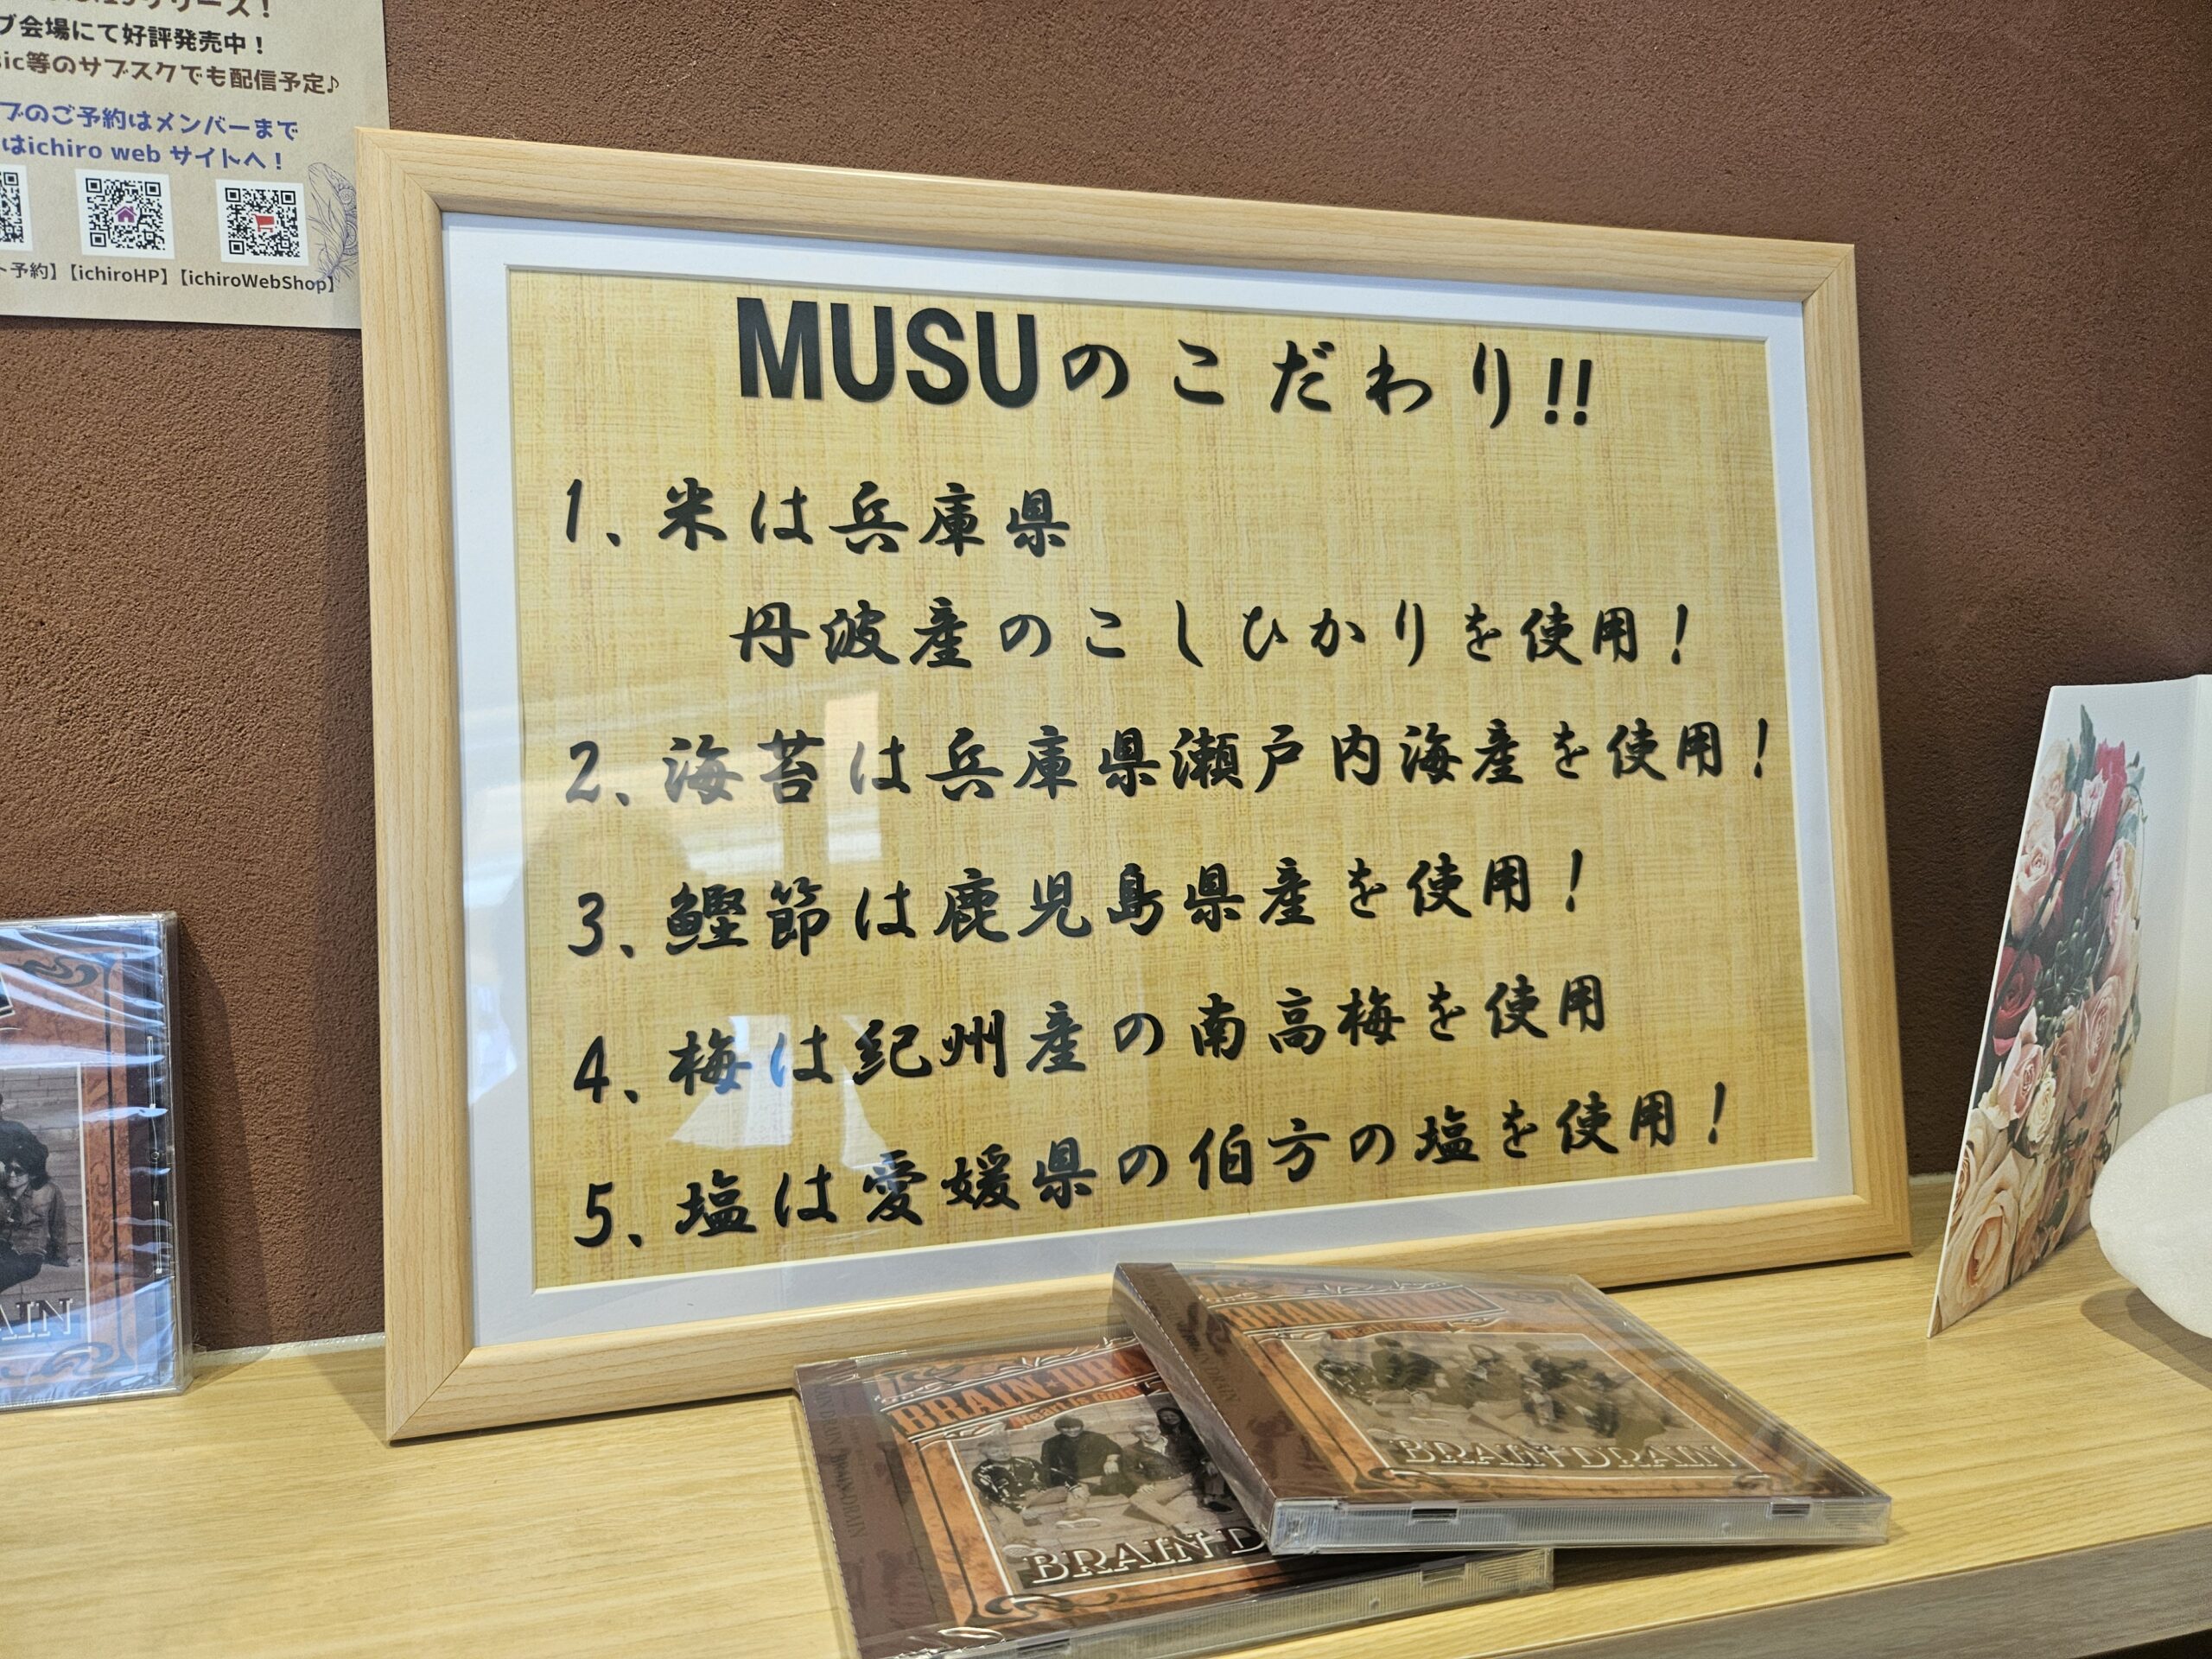 ブ会場にて好評発売中！
ic等のサブスクでも配信予定♪
ブのご予約はメンバーまで
はichiro web サイトへ！
ト予約】【ichiroHP】【ichiroWebShop】
MUSUのこだわり!!
1、米は兵庫県
丹波産のこしひかりを使用！
2、海苔は兵庫県瀬戸内海産を使用！
3、鰹節は鹿児島県産を使用！
4、梅は紀州産の南高梅を使用
5、塩は愛媛県の伯方の塩を使用！
AIN
BRAIN
Heart is Go
BRAIN D
BRAIN DRAIN